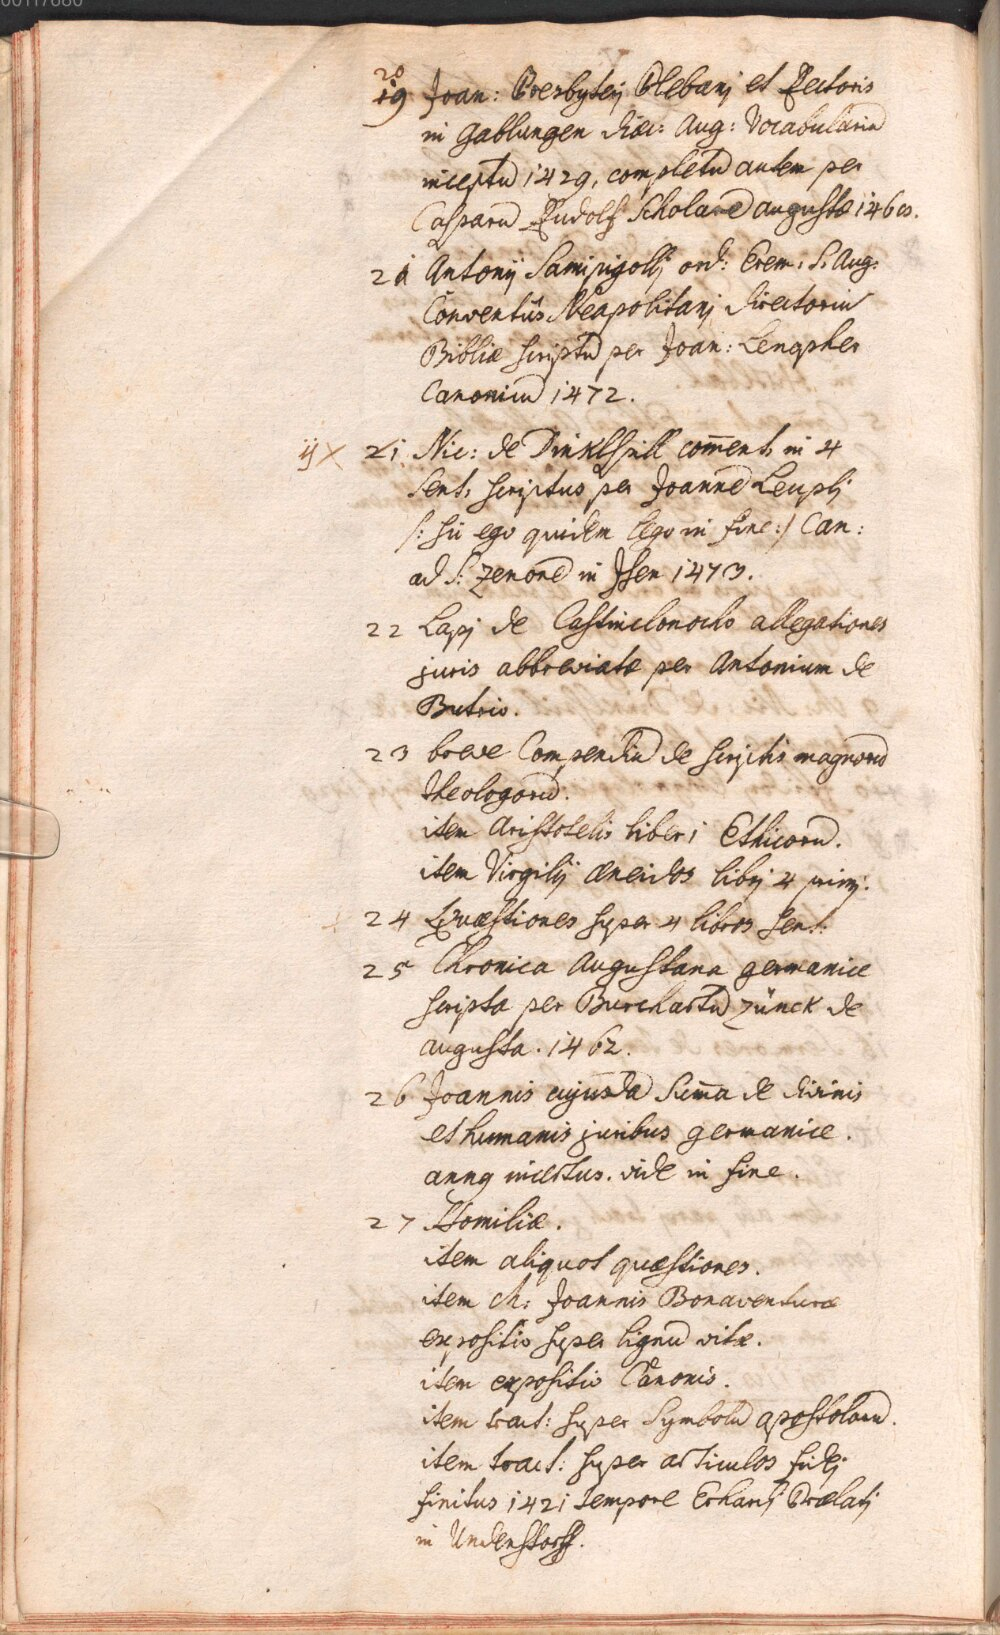 20
19 Joan: Presbyterj Plebanj et Rectoris
in Gablungen diœc: Aug: Vocabulariū
inceptū 1429, completū autem per
Casparū Rudolf Scholarē augustæ 1460.
21 Antonij Sampigollj ord: Erem. S. Aug:
Conventûs Neapolitanj directoriū
Bibliæ scriptū per Joan: Lenqpher
Canonicū 1472.
ij × 21 Nic: de Dinklspill com̄ent. in 4
Sent. scriptus per Joannē Leuplj
/: sic ego quidem lego in fine :/ Can:
ad S. Zenonē in Jsen 1473.
22 Lapj de allegationes
juris abbreviatæ per Antonium de
Butrio.
23 breve Compendiū de scriptis magnorū
theologorū.
item Aristotelis liber 1 Ethicorū.
item Virgilij Æneidos librj 4 primj.
24 Quæstiones super 4 libros Sent:
25 Chronica Augustana germanice
scripta per Burchartū Zünck de
augusta. 1462.
26 Joannis cujusdā Sum̄a de divinis
et humanis juribus germanice.
anng incertus. vide in fine.
27 Homiliæ.
item aliquot quæstiones.
item Joannis Bonaventuræ
expositio super lignū vitæ.
item expositio Canonis.
item tract: super Symbolū apostolorū.
item tract: super articulos fidej
finitus 1421 tempore Erhardj Prælatj
in Undenstorff.